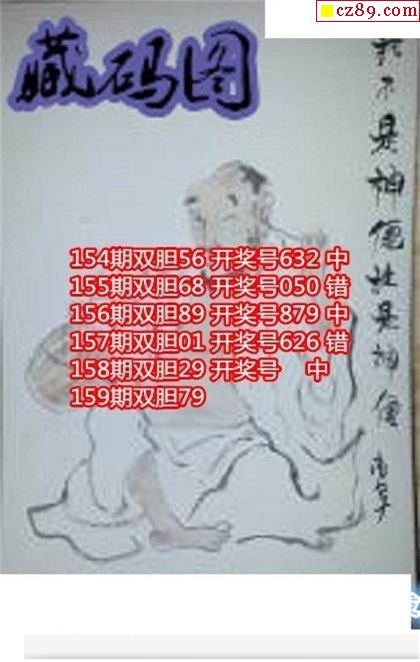 cz89.com
藏码图
我不是神但比是神僊
154期双胆56 开奖号632 中
155期双胆68 开奖号050 错
156期双胆89 开奖号879 中
157期双胆01 开奖号626 错
158期双胆29 开奖号 中
159期双胆79